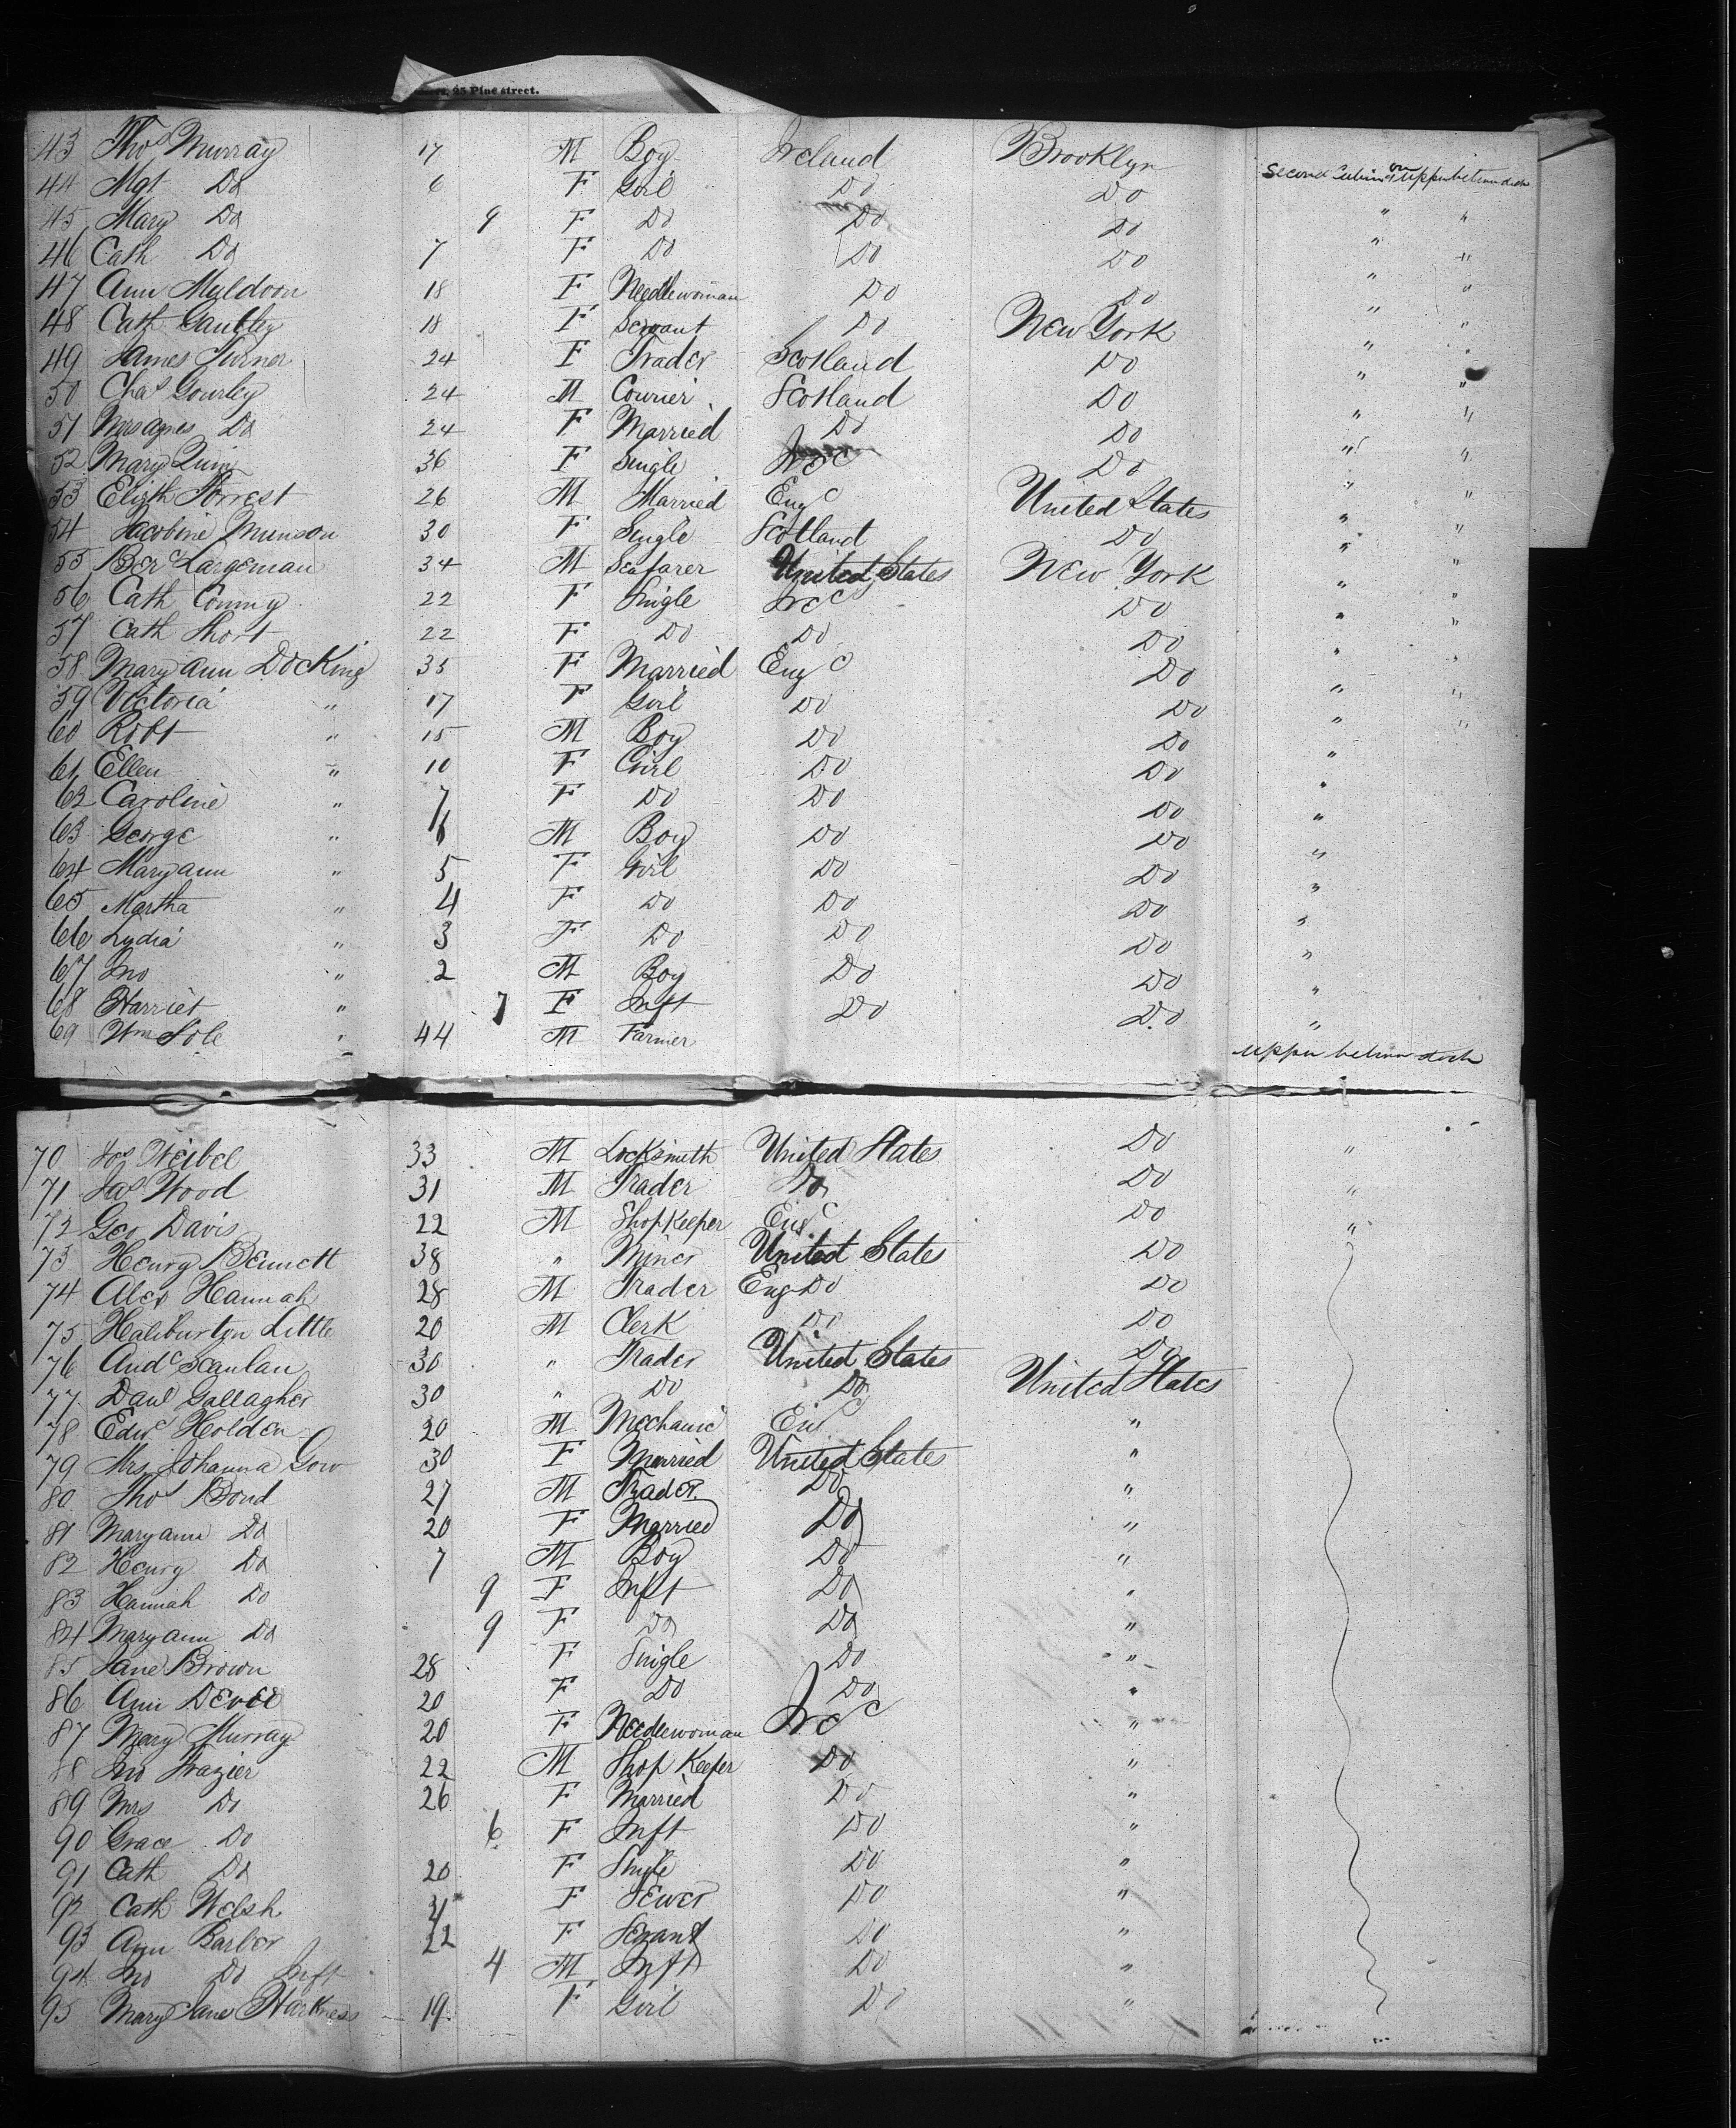 25 Pine street.
43 Thos Murray 17 M Boy Ireland Brooklyn
44 Mgt Do 6 F Girl Do Do Second Cabin on Upper between deck
45 Mary Do 9 F Do Do Do " "
46 Cath Do 7 F Do Do Do " "
47 Ann Muldoon 18 F Needlewoman Do Do " "
48 Cath 18 F Servant Do New York " "
49 James Turner 24 F Trader Scotland Do " "
50 Chas Gourley 24 M Courier Scotland Do " "
51 Mrs Agnes Do 24 F Married Do Do " "
52 Mary Quin 36 F Single Ire Do " "
53 Elizth Forrest 26 M Married Eng United States " "
54 Jacobine Munson 30 F Single Scotland Do " "
55 Largeman 34 M Seafarer United States New York " "
56 Cath 22 F Single Ire Do " "
57 Cath Short 22 F Do Do Do " "
58 Mary ann Docking 35 F Married Eng Do " "
59 Victoria " 17 F Girl Do Do " "
60 Robt " 15 M Boy Do Do " "
61 Ellen " 10 F Girl Do Do "
62 Caroline " 7 F Do Do Do "
63 George " 6 M Boy Do Do "
64 Maryann " 5 F Girl Do Do "
65 Martha " 4 F Do Do Do "
66 Lydia " 3 F Do Do Do "
67 Jno " 2 M Boy Do Do "
68 Harriet " 7 F Inft Do Do "
69 Wm Sole " 44 M Farmer "
upper between deck
70 Jos Weibel 33 M Locksmith United States Do "
71 Jas Wood 31 M Trader Do Do "
72 Geo Davis 22 M Shop Keeper Eng Do "
73 Henry Bennett 38 " Miner United States Do
74 Alex Hannah 28 M Trader Eng Do Do
75 Haliburton Little 20 M Clerk Do Do
76 Andw Scanlan 30 " Trader United States Do
77 Danl Gallagher 30 " Do Do United States
78 Edwd Holden 20 M Mechanic Eng "
79 Mrs Johanna Gow 30 F Married United States "
80 Thos Bond 27 M Trader Do "
81 Maryann Do 20 F Married Do "
82 Henry Do 7 M Boy Do "
83 Hannah Do 9 F Inft Do "
84 Maryann Do 9 F Do Do "
85 Jane Brown 28 F Single Do "
86 Ann 20 F Do Do "
87 Mary Murray 20 F Needlewoman Ire "
88 Jno Frazier 22 M Shop Keeper Do "
89 Mrs Do 26 F Married Do "
90 Grace Do 6 F Inft Do "
91 Cath Do 20 F Single Do "
92 Cath Welsh 21 F Sewer Do "
93 Ann Barber 22 F Servant Do "
94 Jno Do Inft 4 M Inft Do "
95 Mary Jane Harkness 19 F Girl Do "